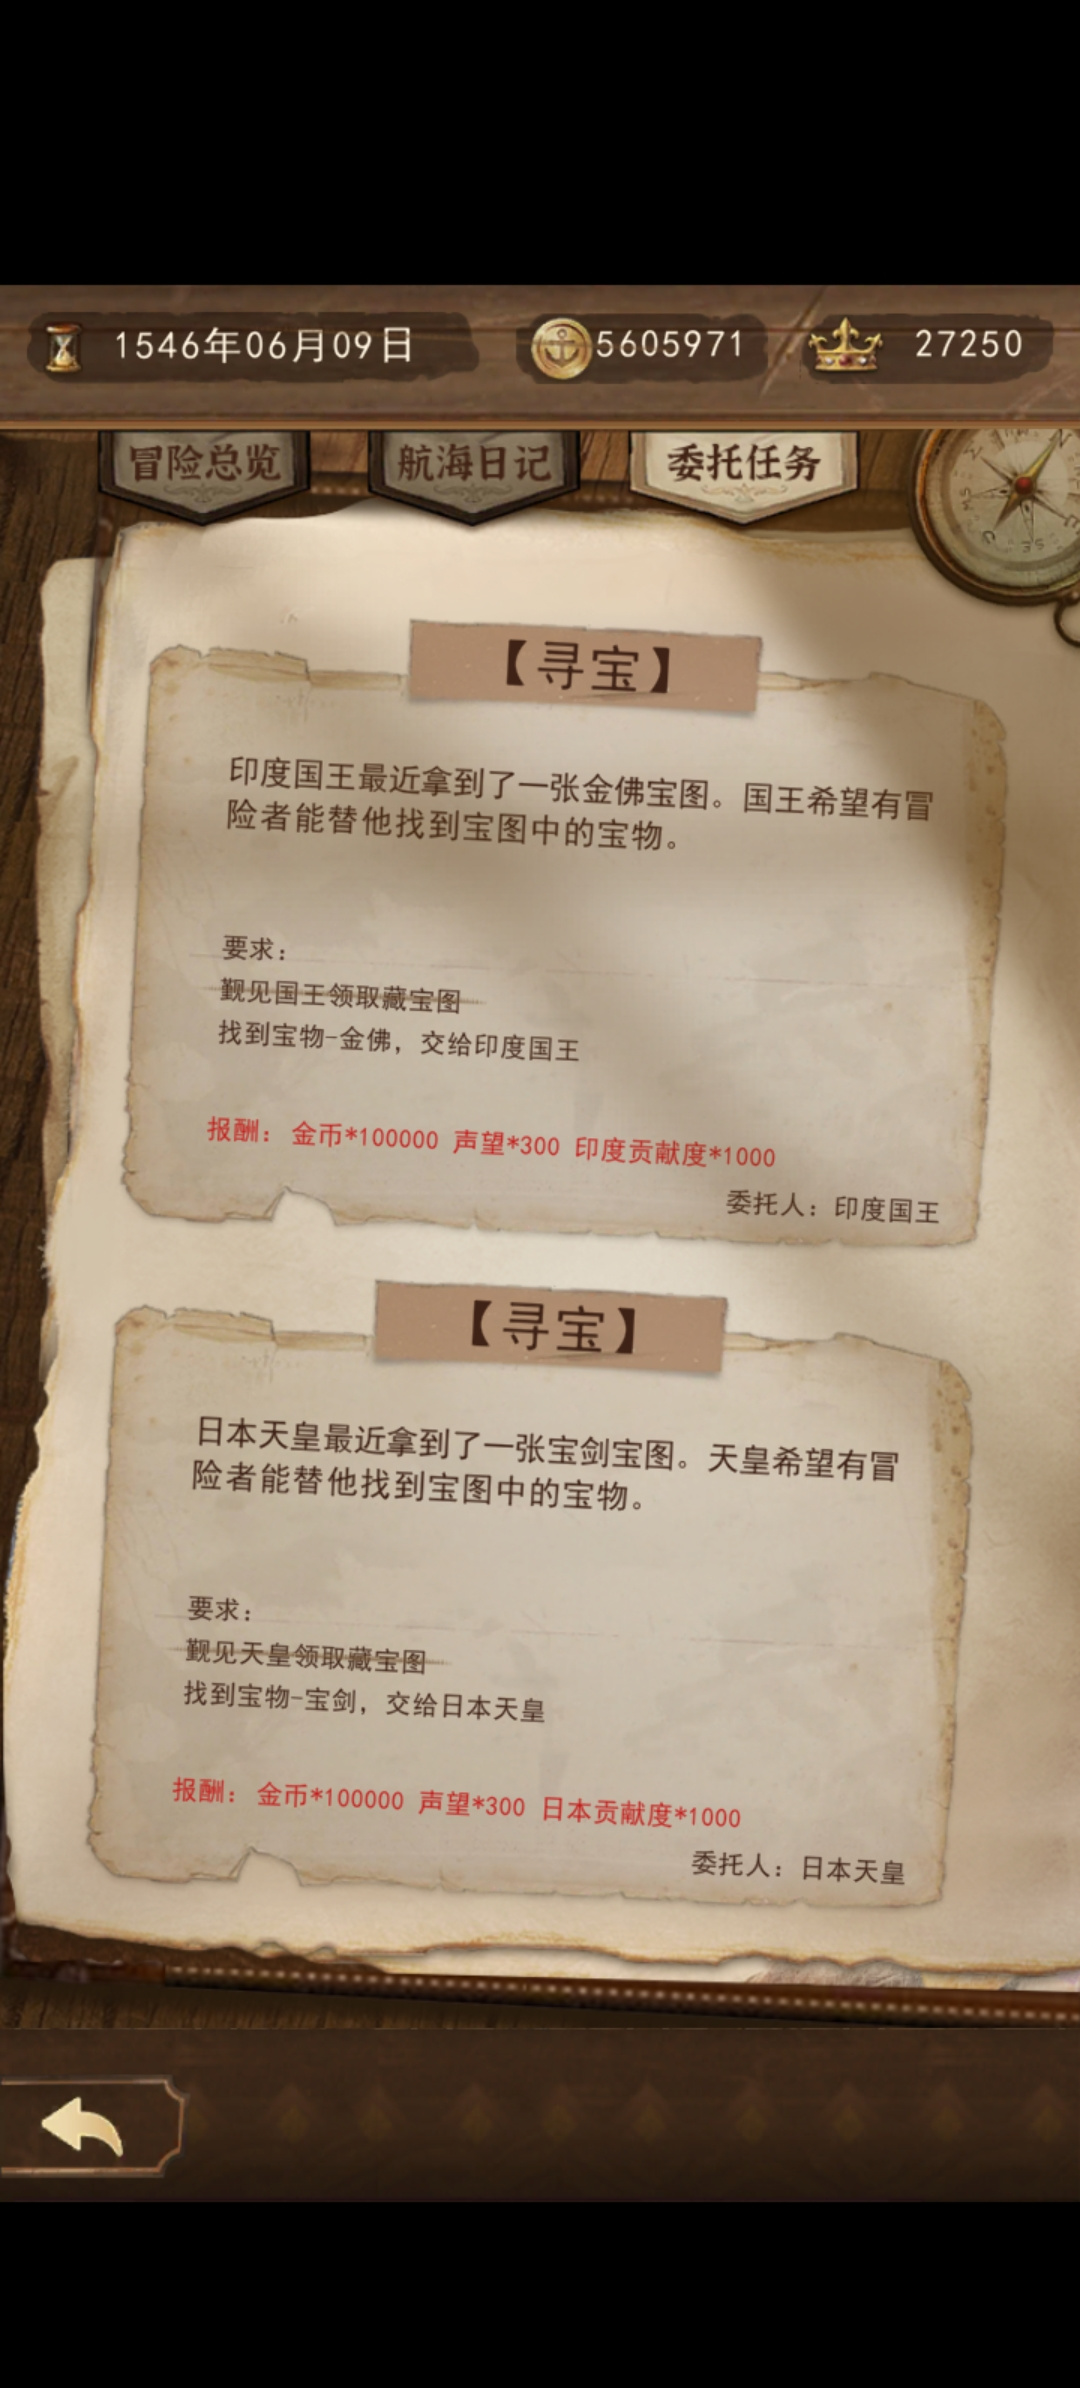 1546年06月09日 5605971 27250
冒险总览 航海日记 委托任务
【寻宝】
印度国王最近拿到了一张金佛宝图。国王希望有冒
险者能替他找到宝图中的宝物。
要求：
觐见国王领取藏宝图
找到宝物-金佛，交给印度国王
报酬： 金币*100000 声望*300 印度贡献度*1000
委托人：印度国王
【寻宝】
日本天皇最近拿到了一张宝剑宝图。天皇希望有冒
险者能替他找到宝图中的宝物。
要求：
觐见天皇领取藏宝图
找到宝物-宝剑，交给日本天皇
报酬： 金币*100000 声望*300 日本贡献度*1000
委托人：日本天皇